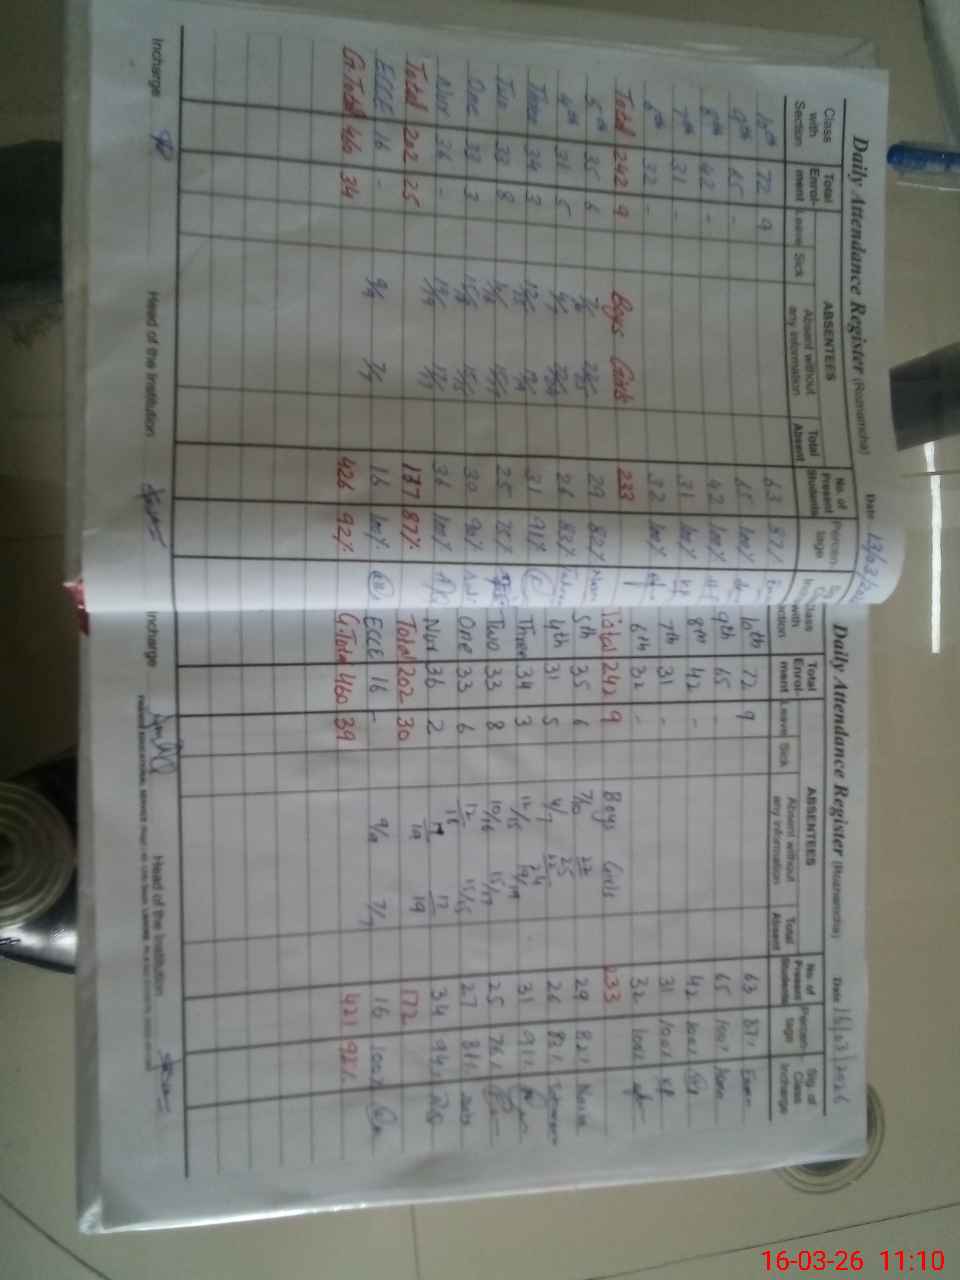 Daily Attendance Register (Roznamcha)
Date
Class with Section Total Enrol- ment ABSENTEES Leave Sick Absent without any information Total Absent No. of Present Students Percen- tage
10th 72 9 63 87%
9th 65 - 65 100%
8th 42 - 42 100%
7th 31 - 31 100%
6th 32 - 32 100%
Total 242 9 Boys Girls 233
5th 35 6 29 82%
4th 31 5 26 83%
Three 34 3 31 91%
Two 33 8 25 75%
One 33 3 30 90%
Nur 36 - 36 100%
Total 202 25 87%
ECCE 16 - 9/9 7/7 16 100%
G.Total 460 34 426 92%
Incharge Head of the Institution
Daily Attendance Register (Roznamcha)
Date 16/03/2026
Class with Section Total Enrol- ment ABSENTEES Leave Sick Absent without any information Total Absent No. of Present Students Percen- tage Sig. of Class Incharge
10th 72 9 63 87%
9th 65 - 65 100%
8th 42 - 42 100%
7th 31 - 31 100%
6th 32 - 32 100%
Total 242 9 Boys Girls 233
5th 35 6 7/10 22/25 29 82%
4th 31 5 4/7 26
Three 34 3 12/15 19/19 31 91%
Two 33 8 10/16 15/17 25 76%
One 33 6 12/18 15/15 27 81%
Nur 36 2 17/19 17 34 94%
Total 202 30 172
ECCE 16 - 9/9 7/7 16 100%
G.Total 460 39 421 92%
Incharge Head of the Institution
16-03-26 11:10